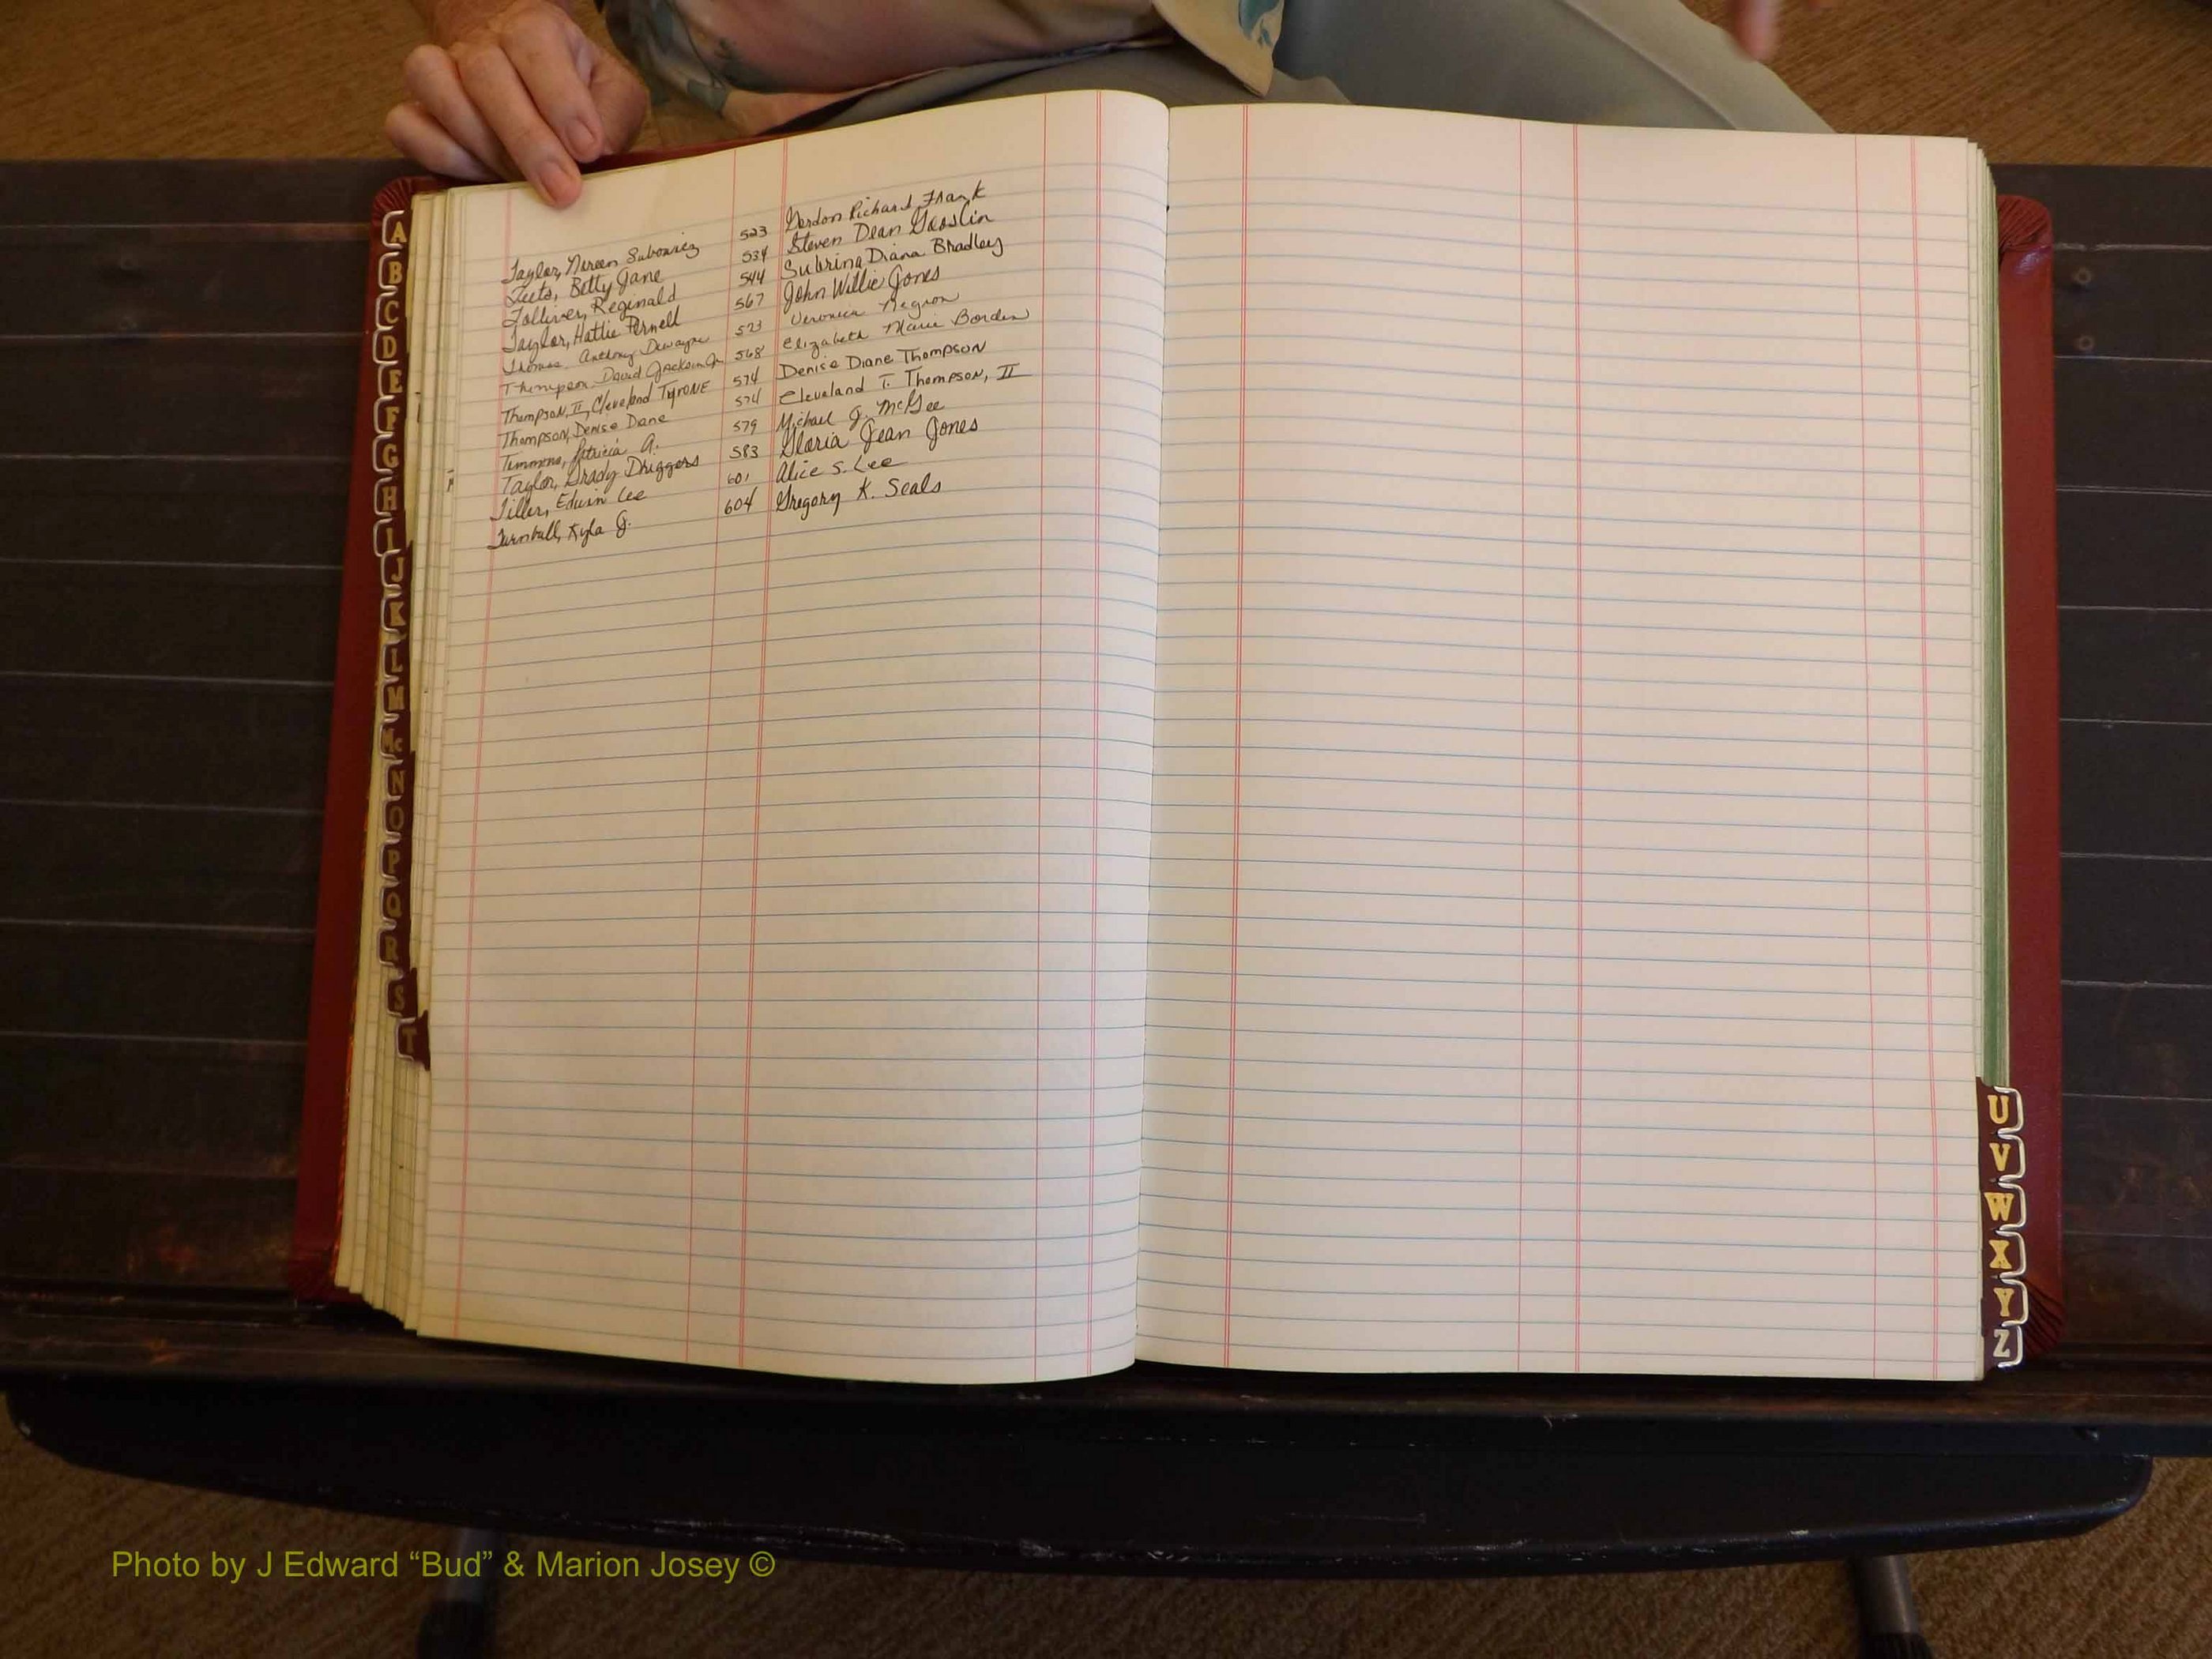 Taylor, Noreen Subowicz 523 Gordon Richard Frank
Teets, Betty Jane 534 Steven Dean Gosslin
Tolliver, Reginald 544 Subrina Diana Bradley
Taylor, Hattie Pernell 567 John Willie Jones
Thomas, Anthony Dewayne 573 Veronica Negron
Thompson, David Jackson Jr. 568 Elizabeth Marie Borden
Thompson, II, Cleveland Tyrone 574 Denise Diane Thompson
Thompson, Denise Diane 574 Cleveland T. Thompson, II
Timmons, Patricia A. 579 Michael J. McGee
Taylor, Grady Driggers 583 Gloria Jean Jones
Tiller, Edwin Lee 601 Alice S. Lee
Turnball, Kyla J. 604 Gregory K. Seals
A
B
C
D
E
F
G
H
I
J
K
L
M
Mc
N
O
P
Q
R
S
T
U
V
W
X
Y
Z
Photo by J Edward “Bud” & Marion Josey ©